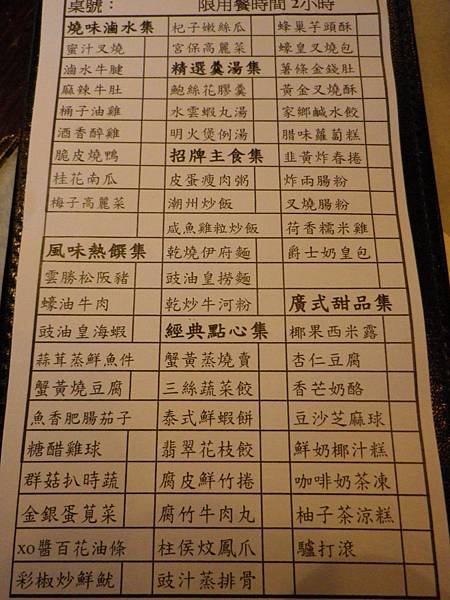 桌號： 限用餐時間 2小時
燒味滷水集
蜜汁叉燒
滷水牛腱
麻辣牛肚
桶子油雞
酒香醉雞
脆皮燒鴨
桂花南瓜
梅子高麗菜
風味熱饌集
雲勝松阪豬
蠔油牛肉
豉油皇海蝦
蒜茸蒸鮮魚件
蟹黃燒豆腐
魚香肥腸茄子
糖醋雞球
群菇扒時蔬
金銀蛋莧菜
xo醬百花油條
彩椒炒鮮魷
杞子嫩絲瓜
宮保高麗菜
精選羹湯集
鮑絲花膠羹
水雲蝦丸湯
明火煲例湯
招牌主食集
皮蛋瘦肉粥
潮州炒飯
咸魚雞粒炒飯
乾燒伊府麵
豉油皇撈麵
乾炒牛河粉
經典點心集
蟹黃蒸燒賣
三絲蔬菜餃
泰式鮮蝦餅
翡翠花枝餃
腐皮鮮竹捲
腐竹牛肉丸
柱侯炆鳳爪
豉汁蒸排骨
蜂巢芋頭酥
蠔皇叉燒包
薯條金錢肚
黃金叉燒酥
家鄉鹹水餃
腊味蘿蔔糕
韭黃炸春捲
炸兩腸粉
叉燒腸粉
荷香糯米雞
爵士奶皇包
廣式甜品集
椰果西米露
杏仁豆腐
香芒奶酪
豆沙芝麻球
鮮奶椰汁糕
咖啡奶茶凍
柚子茶涼糕
驢打滾